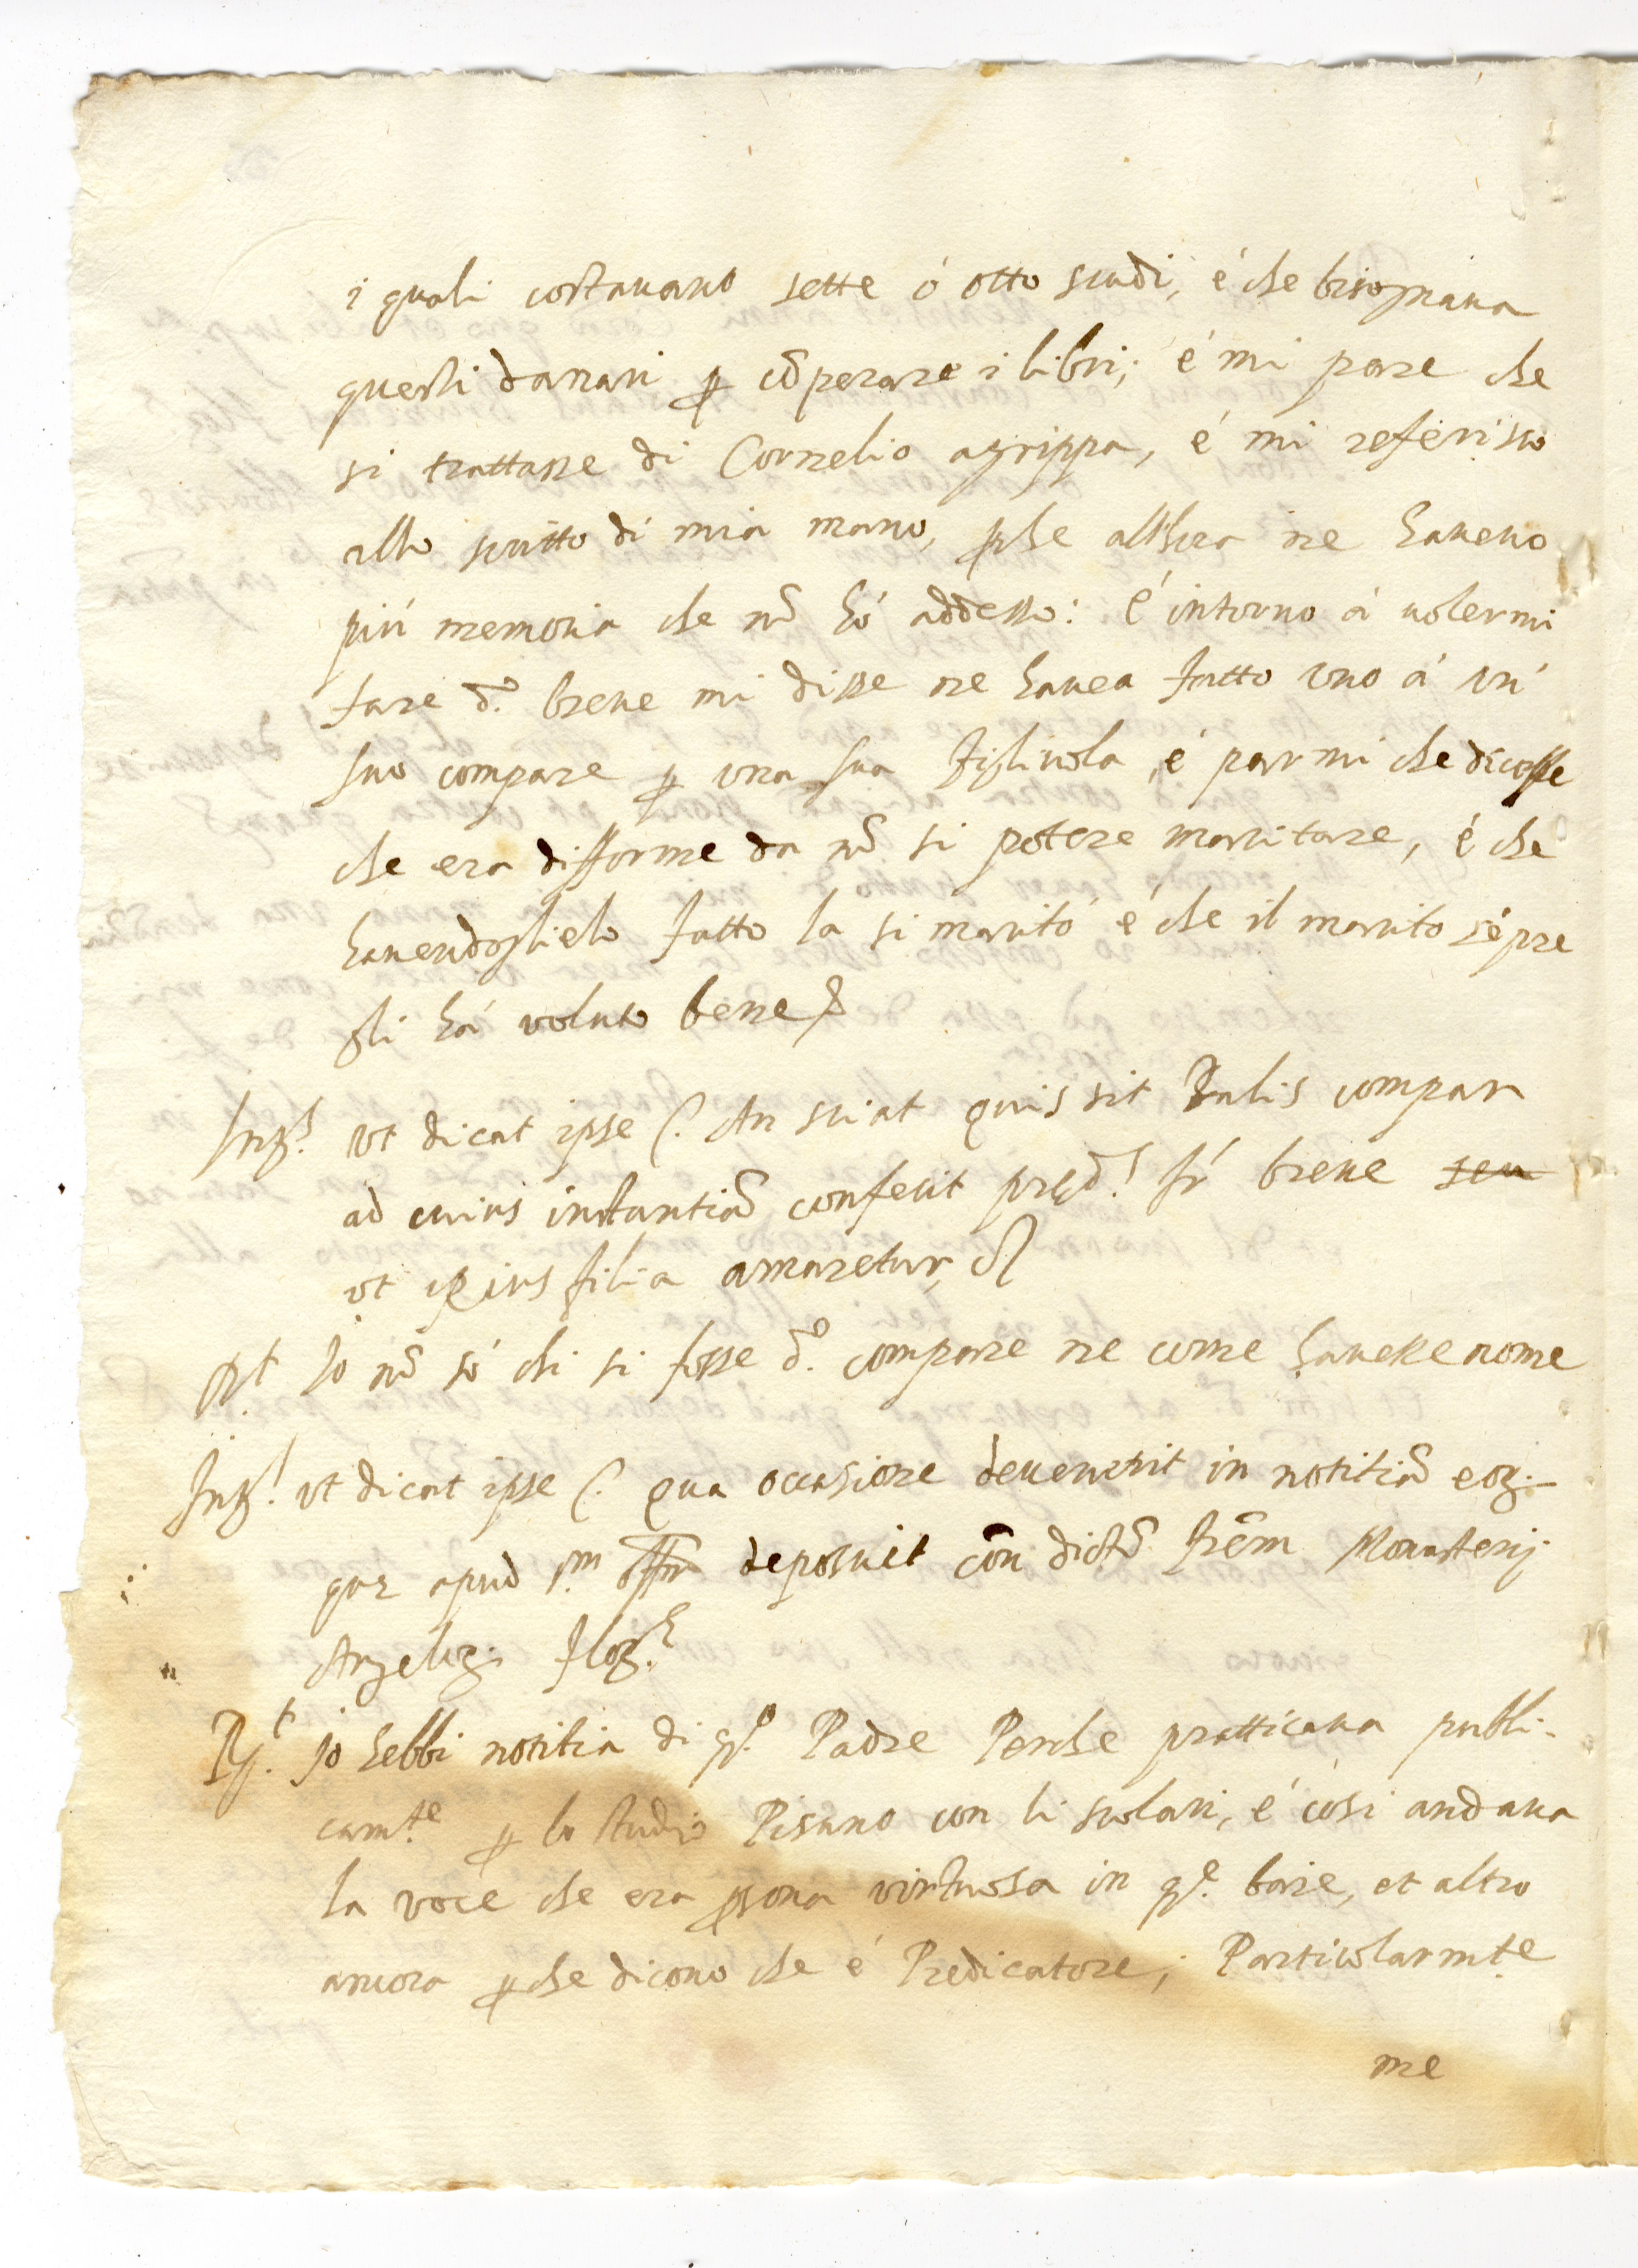 i quali costauano sette ó otto scudi, é che bisogniaua
questi danari p cõperare i libri; é mi pare che
si trattasse di Cornelio agrippa, é mi referisco
allo scritto di mia mano, pche all'hora ne haueuo
piú memoria che nõ hó addesso: é intorno á uolermi
fare d.º breue mi disse ne hauea fatto uno á un'
suo compare p una sua figliuola, é parmi che dicesse
che era difforme da nõ si potere maritare, é che
hauendoglielo fatto la si maritó é che il marito sẽpre
gli há voluto bene
Int.s vt dicat ipse C. An sciat quis sit talis compar
ad cuius instantiã confecit pred.s fr breue seu
vt eius filia amaretur,
Rt Io nõ só chi si fosse d.º compare ne come hauesse nome
Int.s vt dicat ipse C. qua occasione deuenerit in notitiã eoꝝ
que apud s.m offm deposuit cõn dictũ frẽm Monasterij
Angeloꝝ floꝝ.
R.t Io hebbi notitia di q.º Padre Perche pratticaua publi-
cam.te p lo studio Pisano con li scolari, é cosi andaua
la voce che era psona virtuosa in q.e barie, et altro
ancora p che dicono che é Predicatore; Particularm.te
me